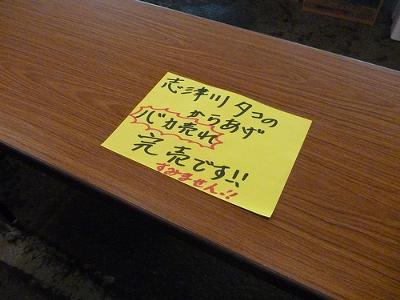 志津川タコの
からあげ
バカ売れ
完売です!!
すみません!!